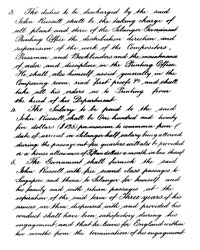 3. The duties to be discharged by the said
John Russell shall be the taking charge of
all plant and stores of the Selangor Government
Printing Office the distribution direction and
supervision of the work of the Compositors,
Pressmen, and Bookbinders and the maintenance
of order and discipline in the Printing Office.
He shall also himself assist generally in the
Composing room and Proof and shall
take all his orders as to Printing from
the head of his Department.
4. The Salary to be paid to the said
John Russell shall be One hundred and twenty
five dollars ($125) per mensem to commence from
date of arrival in Selangor half salary being allowed
during the passage out free quarters will also be provided
or a house allowance of dollars a month in lieu thereof
5. The Government shall furnish the said
John Russell with free second class passages to
Singapore and thence to Selangor for himself and
his family and with return passages at the
expiration of the said term of Three years if his
services are then dispensed with, and provided his
conduct shall have been satisfactory during his
engagement and that he leaves for England within
six months from the termination of the engagement